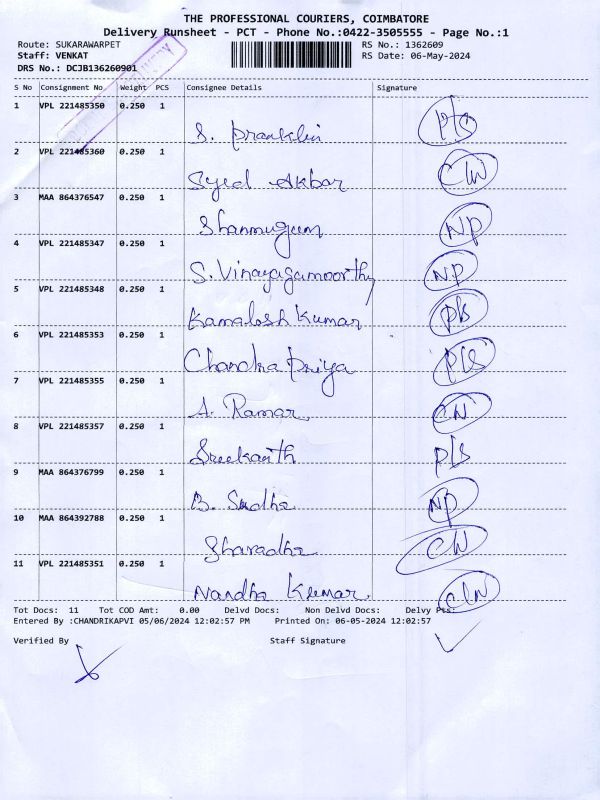 THE PROFESSIONAL COURIERS, COIMBATORE
Delivery Runsheet - PCT - Phone No.:0422-3505555 - Page No.:1
Route: SUKARAWARPET RS No.: 1362609
Staff: VENKAT RS Date: 06-May-2024
DRS No.: DCJB136260901
S No Consignment No Weight PCS Consignee Details Signature
1 VPL 221485350 0.250 1
S. Pranklin Pls
2 VPL 221485360 0.250 1
Syed Akbar C/N
3 MAA 864376547 0.250 1
Shanmugum NP
4 VPL 221485347 0.250 1
S. Vinayagamoorthy NP
5 VPL 221485348 0.250 1
Kamalesh Kumar Pls
6 VPL 221485353 0.250 1
Chandra Priya Pls
7 VPL 221485355 0.250 1
A. Ramar CN
8 VPL 221485357 0.250 1
Sreekanth Pls
9 MAA 864376799 0.250 1
B. Sudha NP
10 MAA 864392788 0.250 1
Sharadha CN
11 VPL 221485351 0.250 1
Nandha Kumar. C/N
Tot Docs: 11 Tot COD Amt: 0.00 Delvd Docs: Non Delvd Docs: Delvy Pts:
Entered By :CHANDRIKAPVI 05/06/2024 12:02:57 PM Printed On: 06-05-2024 12:02:57
Verified By Staff Signature